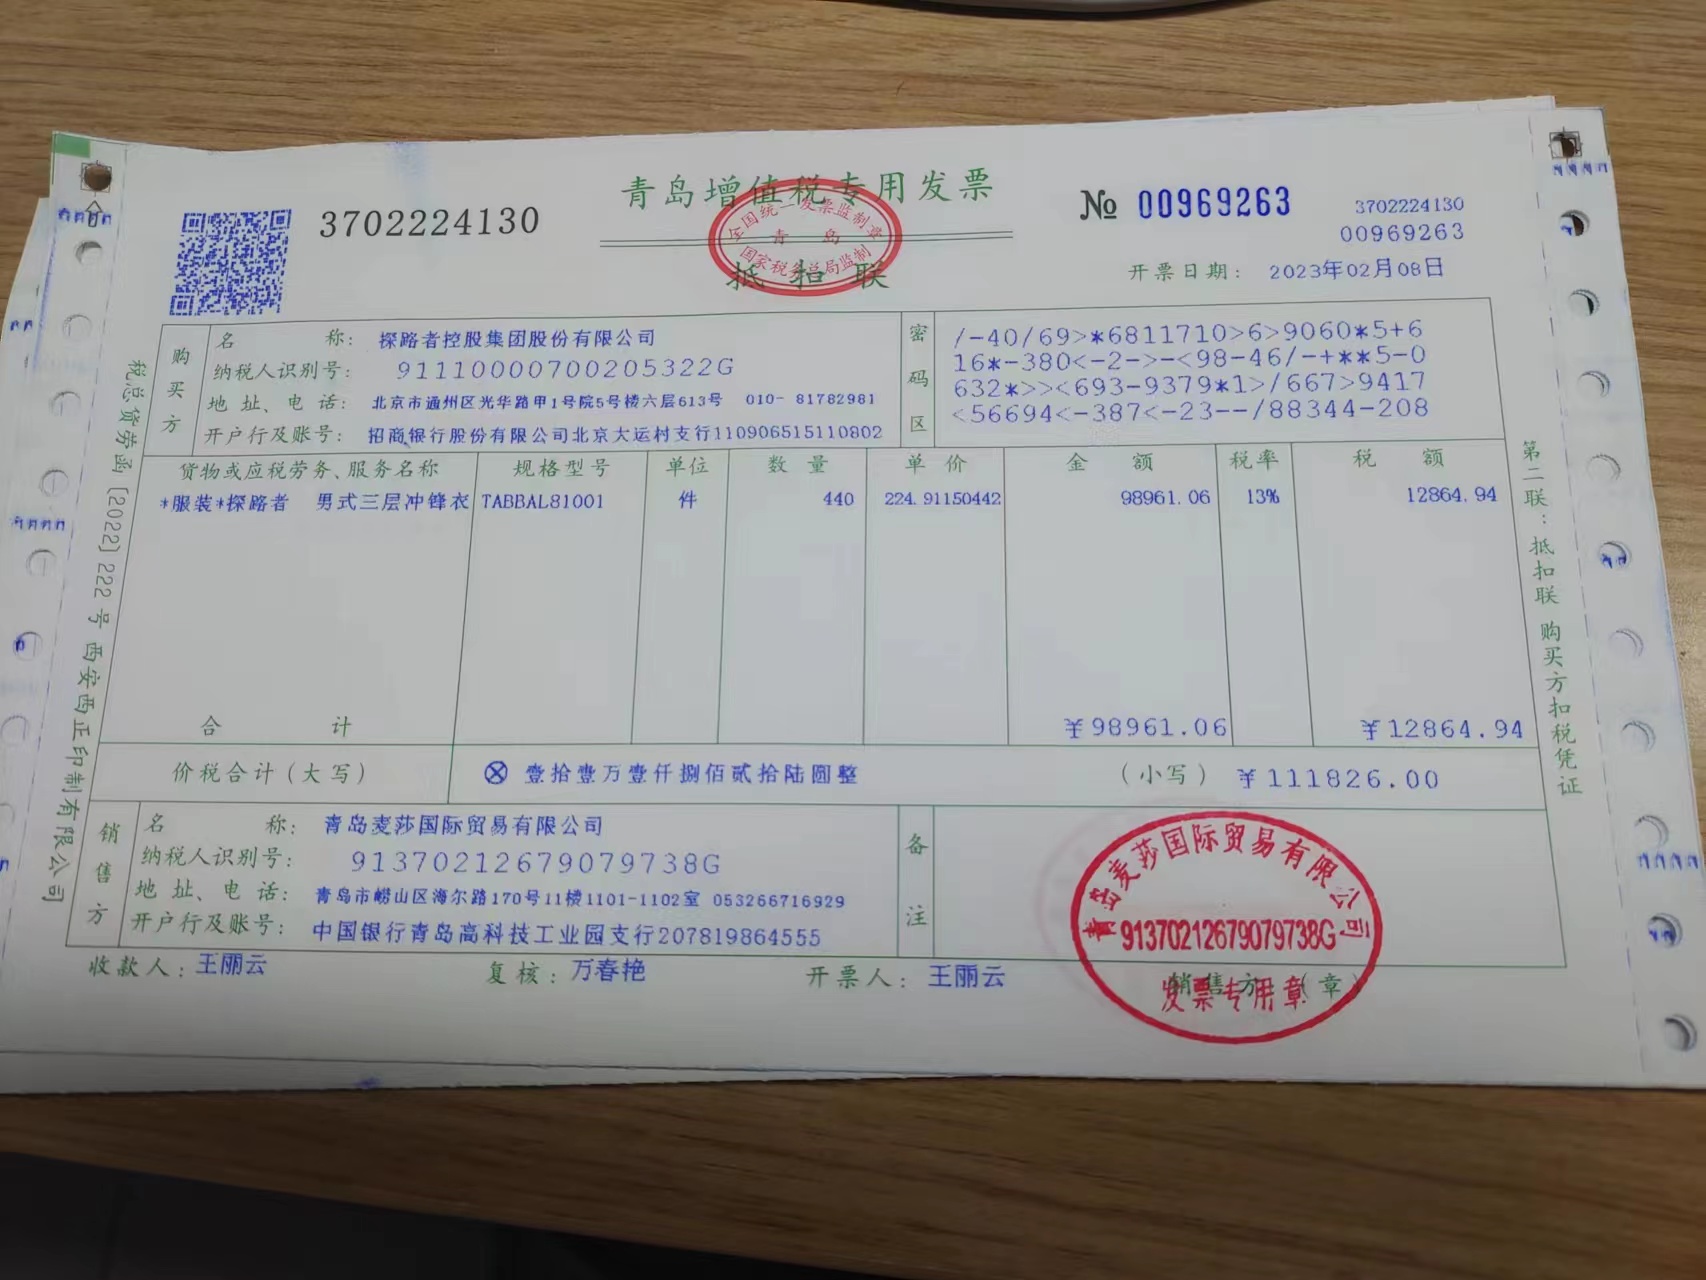 3702224130
青岛增值税专用发票
全国统一发票监制章
青岛
国家税务总局监制
抵扣联
№ 00969263
3702224130
00969263
开票日期： 2023年02月08日
税总货劳函〔2022〕222号 西安西正印制有限公司
购买方
名称： 探路者控股集团股份有限公司
纳税人识别号： 91110000700205322G
地址、电话： 北京市通州区光华路甲1号院5号楼六层613号 010- 81782981
开户行及账号： 招商银行股份有限公司北京大运村支行110906515110802
密码区
/-40/69>*6811710>6>9060*5+6
16*-380<-2->-<98-46/-+**5-0
632*>><693-9379*1>/667>9417
<56694<-387<-23--/88344-208
货物或应税劳务、服务名称 规格型号 单位 数量 单价 金额 税率 税额
*服装*探路者 男式三层冲锋衣 TABBAL81001 件 440 224.91150442 98961.06 13% 12864.94
合计 ¥98961.06 ¥12864.94
价税合计（大写） ⊗ 壹拾壹万壹仟捌佰贰拾陆圆整 （小写） ¥111826.00
销售方
名称： 青岛麦莎国际贸易有限公司
纳税人识别号： 91370212679079738G
地址、电话： 青岛市崂山区海尔路170号11楼1101-1102室 053266716929
开户行及账号： 中国银行青岛高科技工业园支行207819864555
备注
收款人： 王丽云 复核： 万春艳 开票人： 王丽云 销售方：（章）
青岛麦莎国际贸易有限公司
91370212679079738G
发票专用章
第二联：抵扣联 购买方扣税凭证